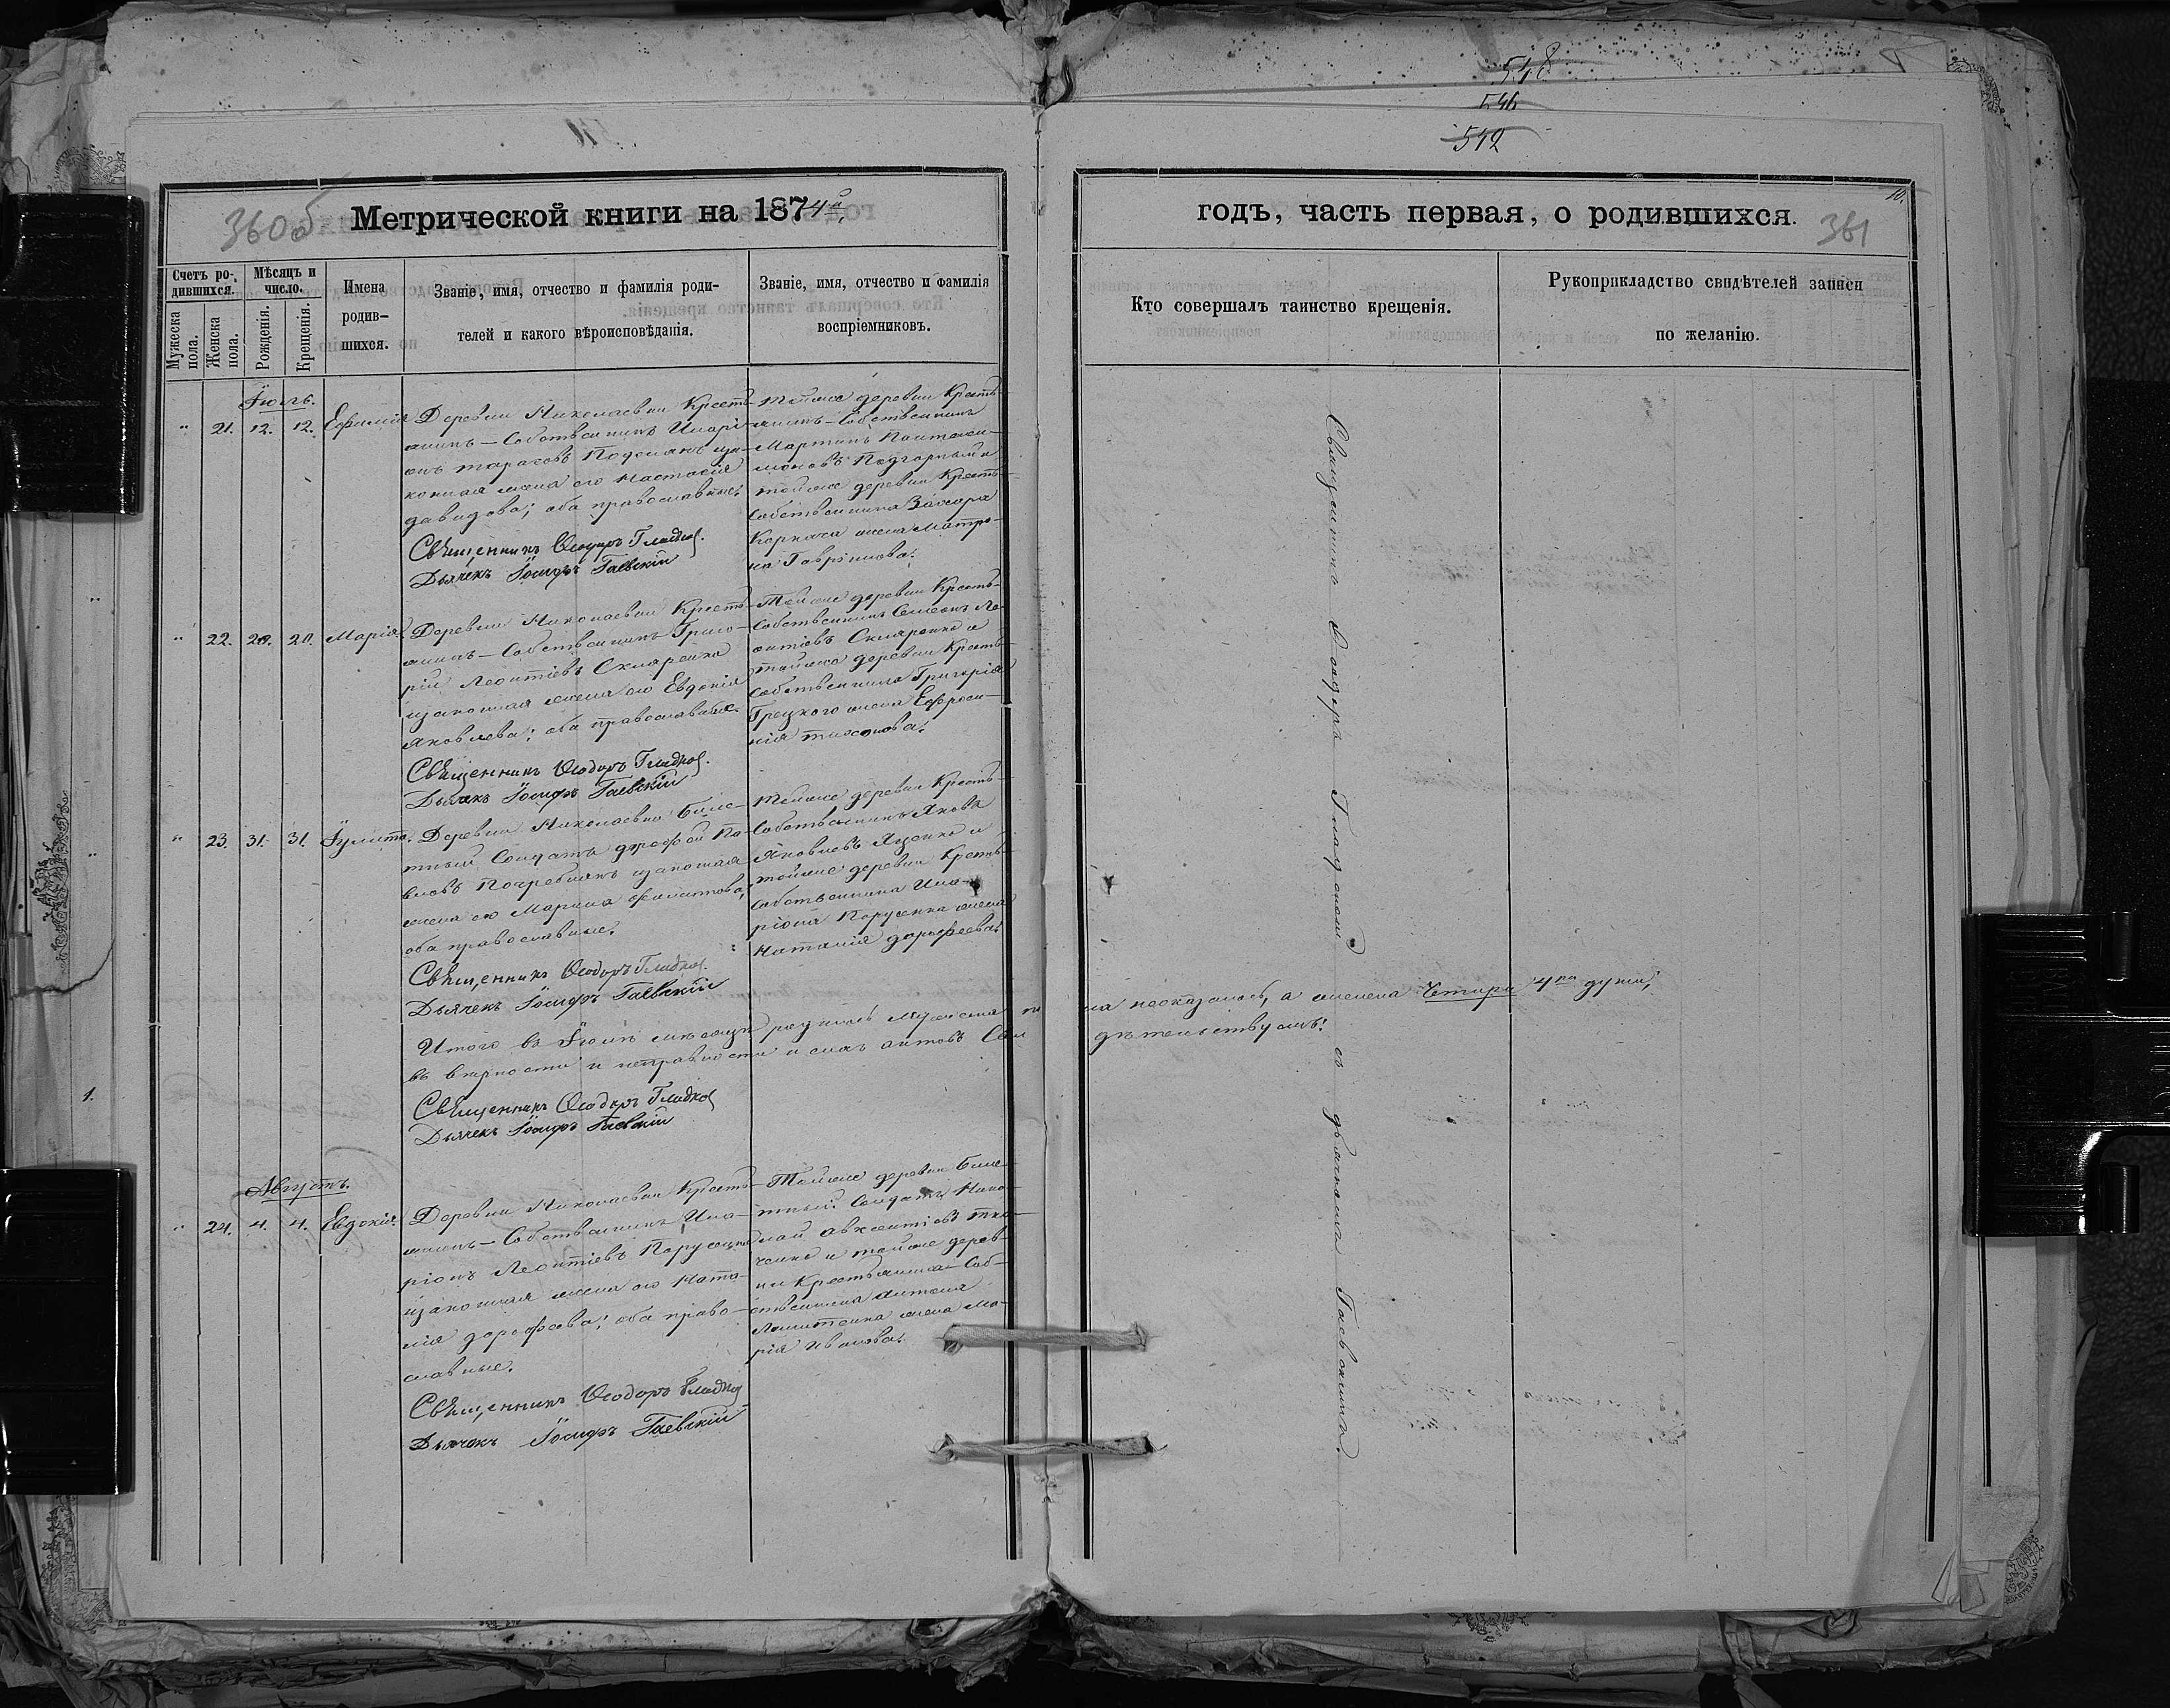 518
546
542
360об
Метрической книги на 1874й
годъ, часть первая, о родившихся.
10.
361
Счетъ родившихся.
Мужеска пола.
Женска пола.
Мѣсяцъ и число.
Рожденія.
Крещенія.
Имена родив-
шихся.
Званіе, имя, отчество и фамилія роди-
телей и какого вѣроисповѣданія.
Званіе, имя, отчество и фамилія
воспріемниковъ.
Кто совершалъ таинство крещенія.
Рукоприкладство свидѣтелей записи
по желанію.
Іюль.
" 21. 12. 12. Ефимія
Деревни Николаевки Кресть-
янинъ-Собственникъ Илари-
онъ Тарасовъ за-
конная жена его Настасія
Давидова; оба православные.
Священникъ Ѳеодоръ Гладкой.
Дьячекъ Іосифъ Гаевскій
Тойже деревни Кресть-
янинъ-Собственникъ
Мартинъ Пантели-
моновъ Подгорный и
тойже деревни Кресть-
Собственника Захара
Корнача жена Матро-
на Гаврілова.
" 22. 20. 20. Марія.
Деревни Николаевки Кресть-
янинъ-Собственникъ Григо-
рій Леонтіевъ Скляренко
изаконная жена его Евдокія
Яковлева; оба православные.
Священникъ Ѳеодоръ Гладкой.
Дьячекъ Іосифъ Гаевскій
Тойже деревни Кресть-
Собственникъ Семенъ Ле-
онтіевъ Скляренко и
тойже деревни Кресть-
Собственника Григорія
Грецкого жена Ефроси-
нія Тихонова.
" 23. 31. 31. Іулита.
Деревни Николаевки Биле-
тный Солдатъ Дорофѣй Па-
вловъ Погребнякъ изаконная
жена его Марина Филипова,
оба православные.
Священникъ Ѳеодоръ Гладкой.
Дьячекъ Іосифъ Гаевскій
Тойже деревни Кресть-
Собственникъ Яковъ
Яковлевъ Яценко и
тойже деревни Кресть-
Собственника Ила-
ріона Парусенка жена
Наталія Дорофеева.
Итого въ Іюлѣ мѣсяцѣ родилось мужеска по
ла неоказалось, а женска Четыри 4ри души;
въ вѣрности и исправности сихъ актовъ Сви
дѣтельствуемъ:
Священникъ Ѳеодоръ Гладкой
Дьячекъ Іосифъ Гаевскій
Августъ.
" 24. 4. 4. Евдокія.
Деревни Николаевки Кресть-
янинъ-Собственникъ Ила-
ріонъ Леонтіевъ Парусенко
изаконная жена его Ната-
лія Дорофѣева; оба право-
славные.
Священникъ Ѳеодоръ Гладкой
Дьячекъ Іосифъ Гаевскій
Тойже деревни Биле-
тный Солдатъ Нико-
лай Авксентіевъ Тка-
ченко и тойже дерев-
ни Крестьянина-Соб-
ственника Антонія
жена Ма-
рія Иванова.
Священникъ Ѳеодоръ Гладкой съ дьячкомъ Гаевскимъ.
1.